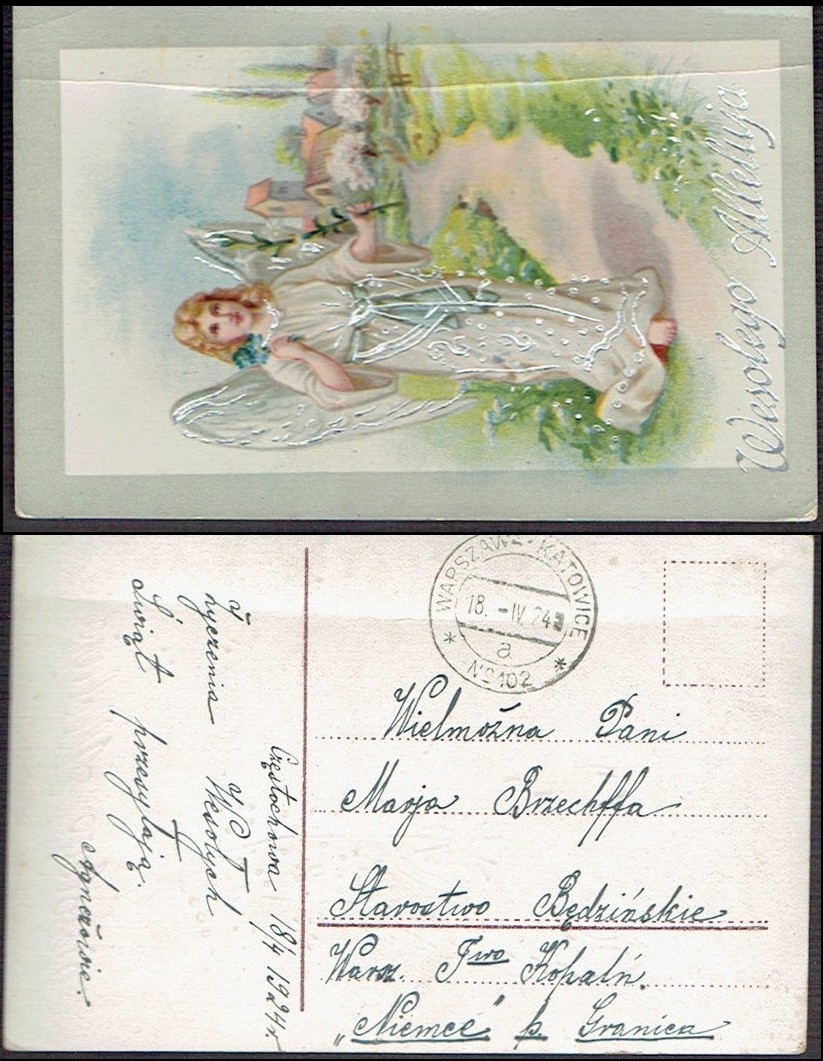 Wesołego Alleluja
WARSZAWA - KATOWICE
18. - IV. 24
a
Nº 102
Wielmożna Pani
Marja Brzechffa
Starostwo Będzińskie
Warsz. Two Kopalń.
„Niemce” p. Granica
Częstochowa 18/4 1924 r.
Życzenia Wesołych
Świąt przesyłają.